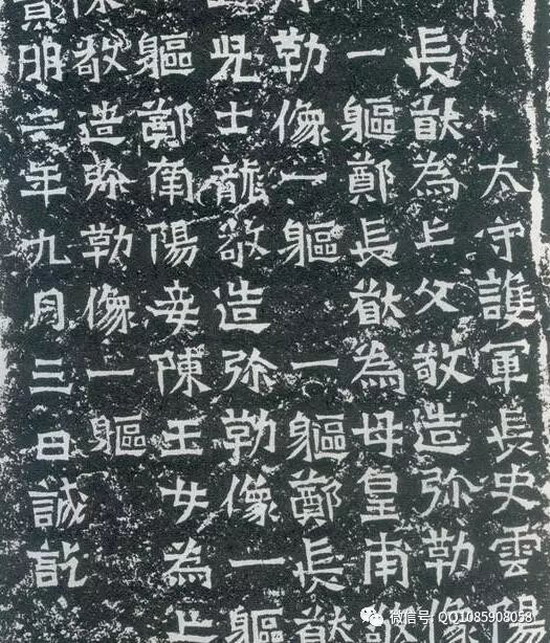 太守護軍長史雲陽
長猷為亡父敬造弥勒像
一軀鄭長猷為母皇甫敬
勒像一軀一軀鄭長猷
兒士龍敬造弥勒像一軀
軀鄭南陽妾陳玉女為亡
敬造弥勒像一軀
景明二年九月三日誡訖
微信号: QQ1085908058